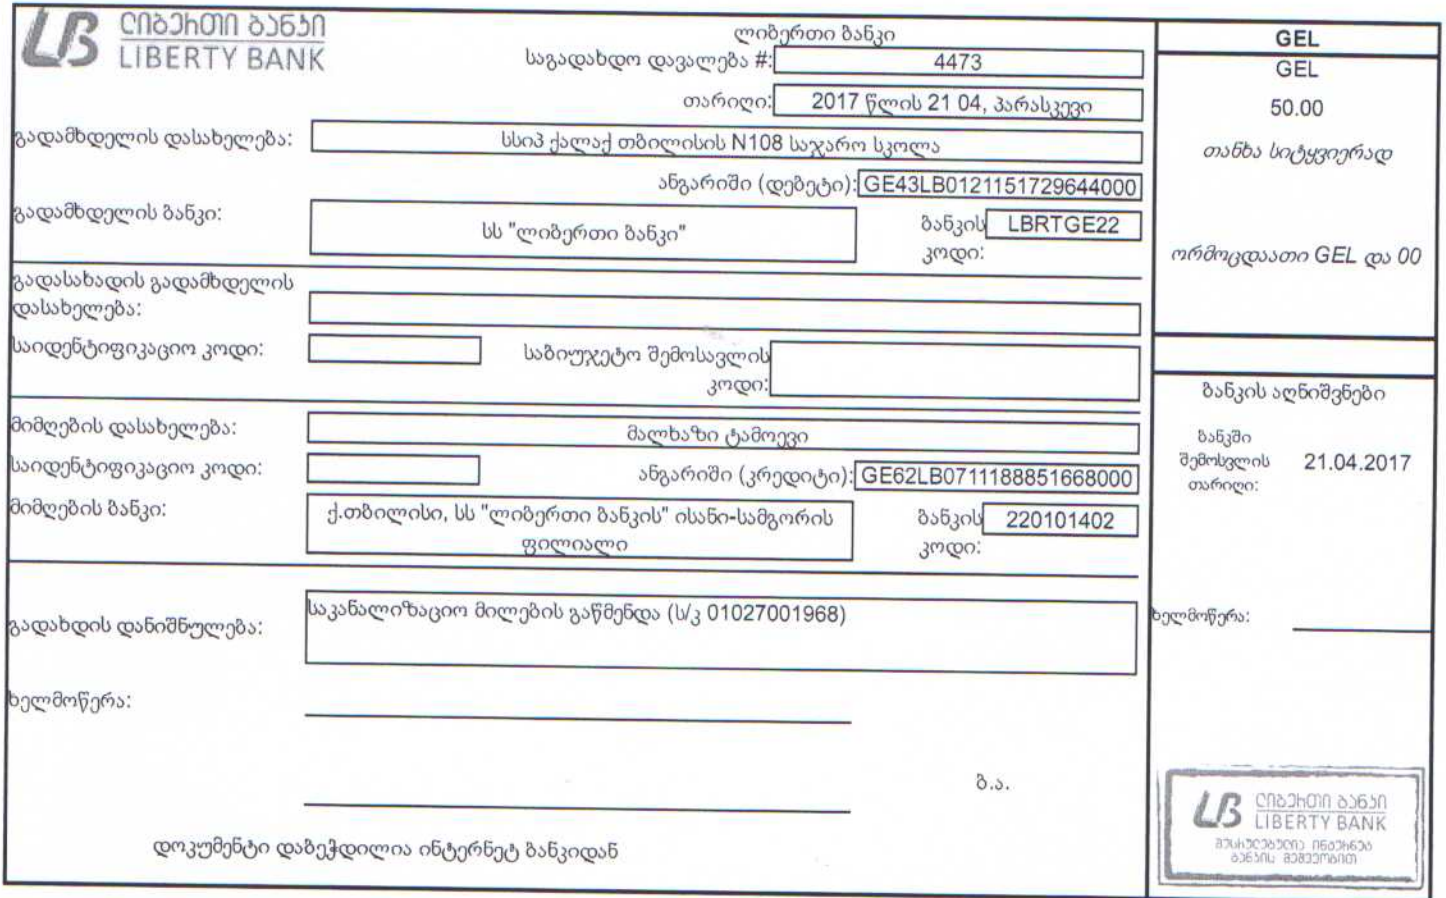 ლიბერთი ბანკი
LIBERTY BANK
ლიბერთი ბანკი
საგადახდო დავალება #: 4473
თარიღი: 2017 წლის 21 04, პარასკევი
გადამხდელის დასახელება: სსიპ ქალაქ თბილისის N108 საჯარო სკოლა
ანგარიში (დებეტი): GE43LB0121151729644000
გადამხდელის ბანკი: სს "ლიბერთი ბანკი" ბანკის კოდი: LBRTGE22
გადასახადის გადამხდელის
დასახელება:
საიდენტიფიკაციო კოდი: საბიუჯეტო შემოსავლის
კოდი:
მიმღების დასახელება: მალხაზი ტამოევი
საიდენტიფიკაციო კოდი: ანგარიში (კრედიტი): GE62LB0711188851668000
მიმღების ბანკი: ქ.თბილისი, სს "ლიბერთი ბანკის" ისანი-სამგორის
ფილიალი
ბანკის კოდი: 220101402
გადახდის დანიშნულება: საკანალიზაციო მილების გაწმენდა (ს/კ 01027001968)
ხელმოწერა:
ბ.ა.
დოკუმენტი დაბეჭდილია ინტერნეტ ბანკიდან
GEL
GEL
50.00
თანხა სიტყვიერად
ორმოცდაათი GEL და 00
ბანკის აღნიშვნები
ბანკში
შემოსვლის
თარიღი:
21.04.2017
ხელმოწერა:
ლიბერთი ბანკი
LIBERTY BANK
შესრულებულია ინტერნეტ
ბანკის მეშვეობით